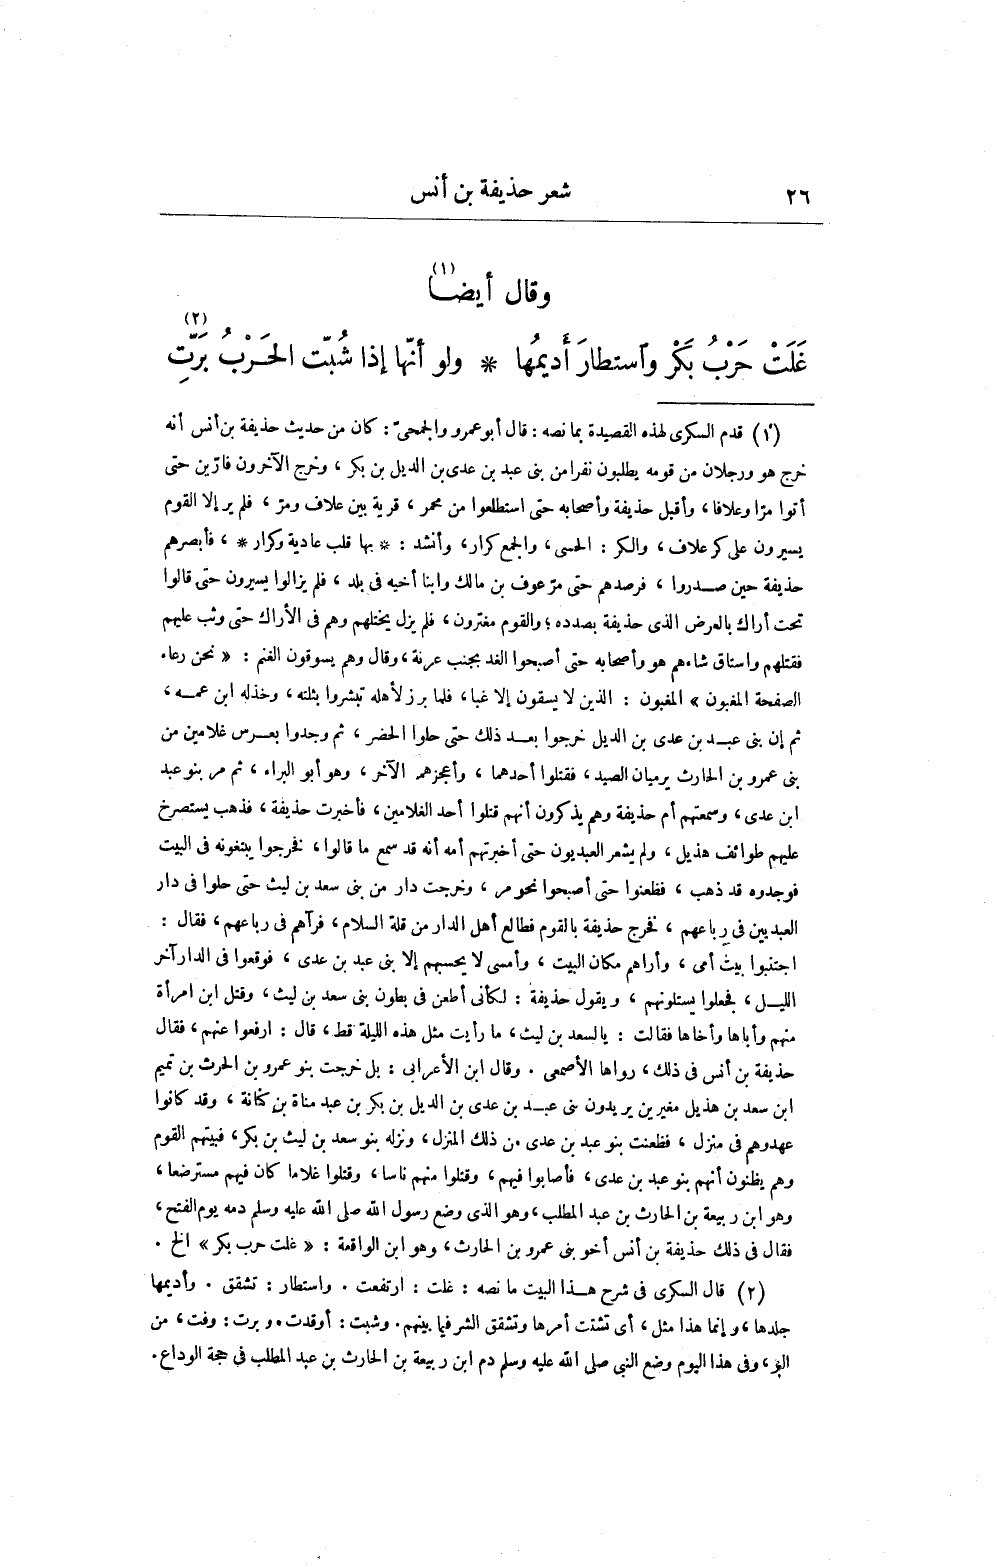 ٢٦ شعر حذيفة بن أنس
وقال أيضـا (١)
غَلَتْ حَرْبُ بَكْرٍ وٱستطارَ أَديمُها * ولو أنّها إذا شُبّت الحَـرْبُ بَرَّتِ (٢)
(١) قدم السكرى لهذه القصيدة بما نصه : قال أبو عمرو والجمحىّ : كان من حديث حذيفة بن أنس أنه
خرج هو ورجلان من قومه يطلبون نفرا من بنى عبد بن عدى بن الديل بن بكر ، وخرج الآخرون فارّين حتى
أتوا مرّا وعلافا ، وأقبل حذيفة وأصحابه حتى استطلعوا من محمر ، قرية بين علاف ومرّ ، فلم ير إلا القوم
يسيرون على كر علاف ، والكر : الحسى ، والجمع كرار ، وأنشد : * بها قلب عادية وكرار * ، فأبصرهم
حذيفة حين صـدروا ، فرصدهم حتى مرّ عوف بن مالك وابنا أخيه فى بلد ، فلم يزالوا يسيرون حتى قالوا
تحت أراك بالعرض الذى حذيفة بصدده ؛ والقوم مغترون ، فلم يزل يختلهم وهم فى الأراك حتى وثب عليهم
فقتلهم واستاق شاءهم هو وأصحابه حتى أصبحوا الغد بجنب عرنة ، وقال وهم يسوقون الغنم : « نحن رعاء
الصفحة المغبون » المغبون : الذين لا يسقون إلا غبا ، فلما برز لأهله تبشروا بثلته ، وخذله ابن عمـه ،
ثم إن بنى عبـد بن عدى بن الديل خرجوا بعـد ذلك حتى حلوا الحضر ، ثم وجدوا بعـرس غلامين من
بنى عمرو بن الحارث يرميان الصيد ، فقتلوا أحدهما ، وأعجزهم الآخر ، وهو أبو البراء ، ثم مر بنو عبد
ابن عدى ، وسمعتهم أم حذيفة وهم يذكرون أنهم قتلوا أحد الغلامين ، فأخبرت حذيفة ، فذهب يستصرخ
عليهم طوائف هذيل ، ولم يشعر العبديون حتى أخبرتهم أمه أنه قد سمع ما قالوا ، فخرجوا يبتغونه فى البيت
فوجدوه قد ذهب ، فظعنوا حتى أصبحوا نحو مر ، وخرجت دار من بنى سعد بن ليث حتى حلوا فى دار
العبديين فى رباعهم ، فخرج حذيفة بالقوم فطالع أهل الدار من قلة السلام ، فرآهم فى رباعهم ، فقال :
اجتنبوا بيت أمى ، وأراهم مكان البيت ، وأمسى لا يحسبهم إلا بنى عبد بن عدى ، فوقعوا فى الدار آخر
الليـل ، فجعلوا يستلونهم ، ويقول حذيفة : لكأنى أطعن فى بطون بنى سعد بن ليث ، وقتل ابن امرأة
منهم وأباها وأخاها فقالت : يالسعد بن ليث ، ما رأيت مثل هذه الليلة قط ، قال : ارفعوا عنهم ، فقال
حذيفة بن أنس فى ذلك ، رواها الأصمعى . وقال ابن الأعرابى : بل خرجت بنو عمرو بن الحرث بن تميم
ابن سعد بن هذيل مغيرين يريدون بنى عبـد بن عدى بن الديل بن بكر بن عبد مناة بن كنانة ، وقد كانوا
عهدوهم فى منزل ، فظعنت بنو عبد بن عدى من ذلك المنزل ، ونزله بنو سعد بن ليث بن بكر ، فبيتهم القوم
وهم يظنون أنهم بنو عبد بن عدى ، فأصابوا فيهم ، وقتلوا منهم ناسا ، وقتلوا غلاما كان فيهم مسترضعا ،
وهو ابن ربيعة بن الحارث بن عبد المطلب ، وهو الذى وضع رسول الله صلى الله عليه وسلم دمه يوم الفتح ،
فقال فى ذلك حذيفة بن أنس أخو بنى عمرو بن الحارث ، وهو ابن الواقعة : « غلت حرب بكر » الخ .
(٢) قال السكرى فى شرح هـذا البيت ما نصه : غلت : ارتفعت . واستطار : تشقق . وأديمها
جلدها ، وإنما هذا مثل ، أى تشتت أمرها وتشقق الشر فيما بينهم . وشبت : أوقدت . وبرت : وفت ، من
البرّ ، وفى هذا اليوم وضع النبي صلى الله عليه وسلم دم ابن ربيعة بن الحارث بن عبد المطلب فى حجة الوداع .